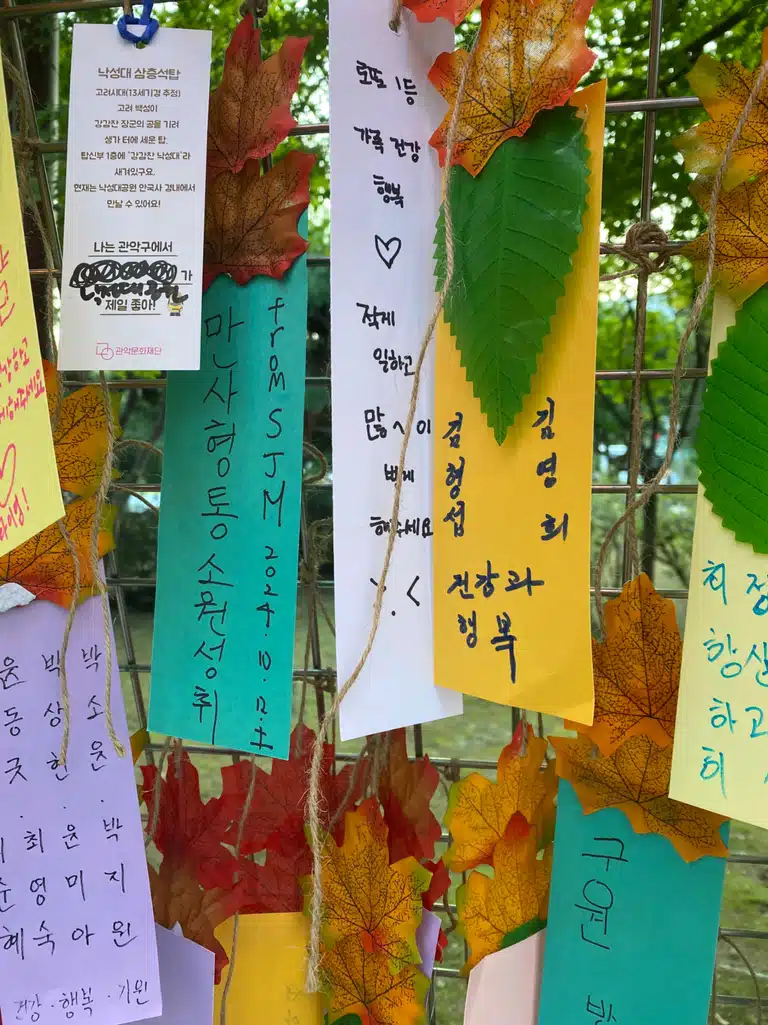 낙성대 삼층석탑
고려시대(13세기경 추정)
고려 백성이
강감찬 장군의 공을 기려
생가 터에 세운 탑.
탑신부 1층에 '강감찬 낙성대'라
새겨있구요.
현재는 낙성대공원 안국사 경내에서
만날 수 있어요!
나는 관악구에서
가
제일 좋아!
관악문화재단
만사형통소원성취
from SJM 2024.10.12.토
로또 1등
가족 건강
행복
♡
적게
일하고
많~이
벌게
해주세요
>.<
김영희
김형섭
건강과
행복
박소윤
박상헌
박지원
윤미아
최영숙
건강·행복·기원
구원
희정
항상
하고
희